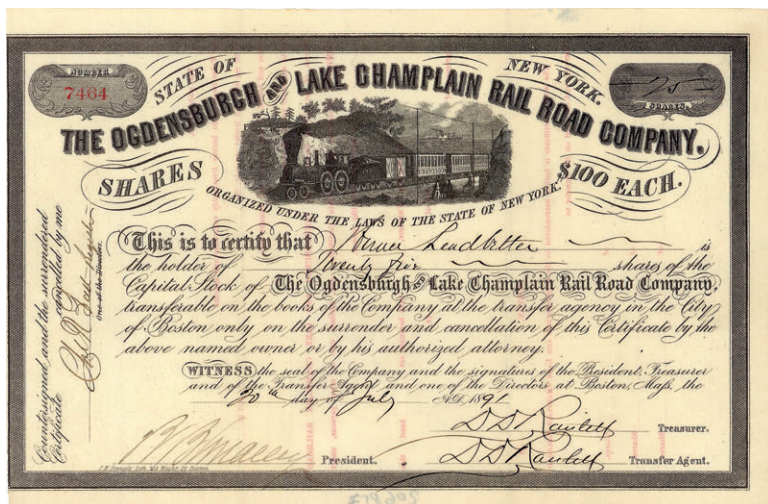 NUMBER
7464
STATE OF
NEW YORK.
25
SHARES.
THE OGDENSBURGH AND LAKE CHAMPLAIN RAIL ROAD COMPANY.
SHARES
$100 EACH.
ORGANIZED UNDER THE LAWS OF THE STATE OF NEW YORK.
This is to certify that Leadbetter is
the holder of Twenty Five shares of the
Capital Stock of The Ogdensburgh and Lake Champlain Rail Road Company,
transferable on the books of the Company at the transfer agency in the City
of Boston only on the surrender and cancellation of this Certificate by the
above named owner or by his authorized attorney.
WITNESS the seal of the Company and the signatures of the President, Treasurer
and of the Transfer Agent and one of the Directors, at Boston, Mass, the
20th day of July A.D. 1891
Treasurer.
President.
Transfer Agent.
Countersigned, and the surrendered
Certificate cancelled by me
One of the Directors.